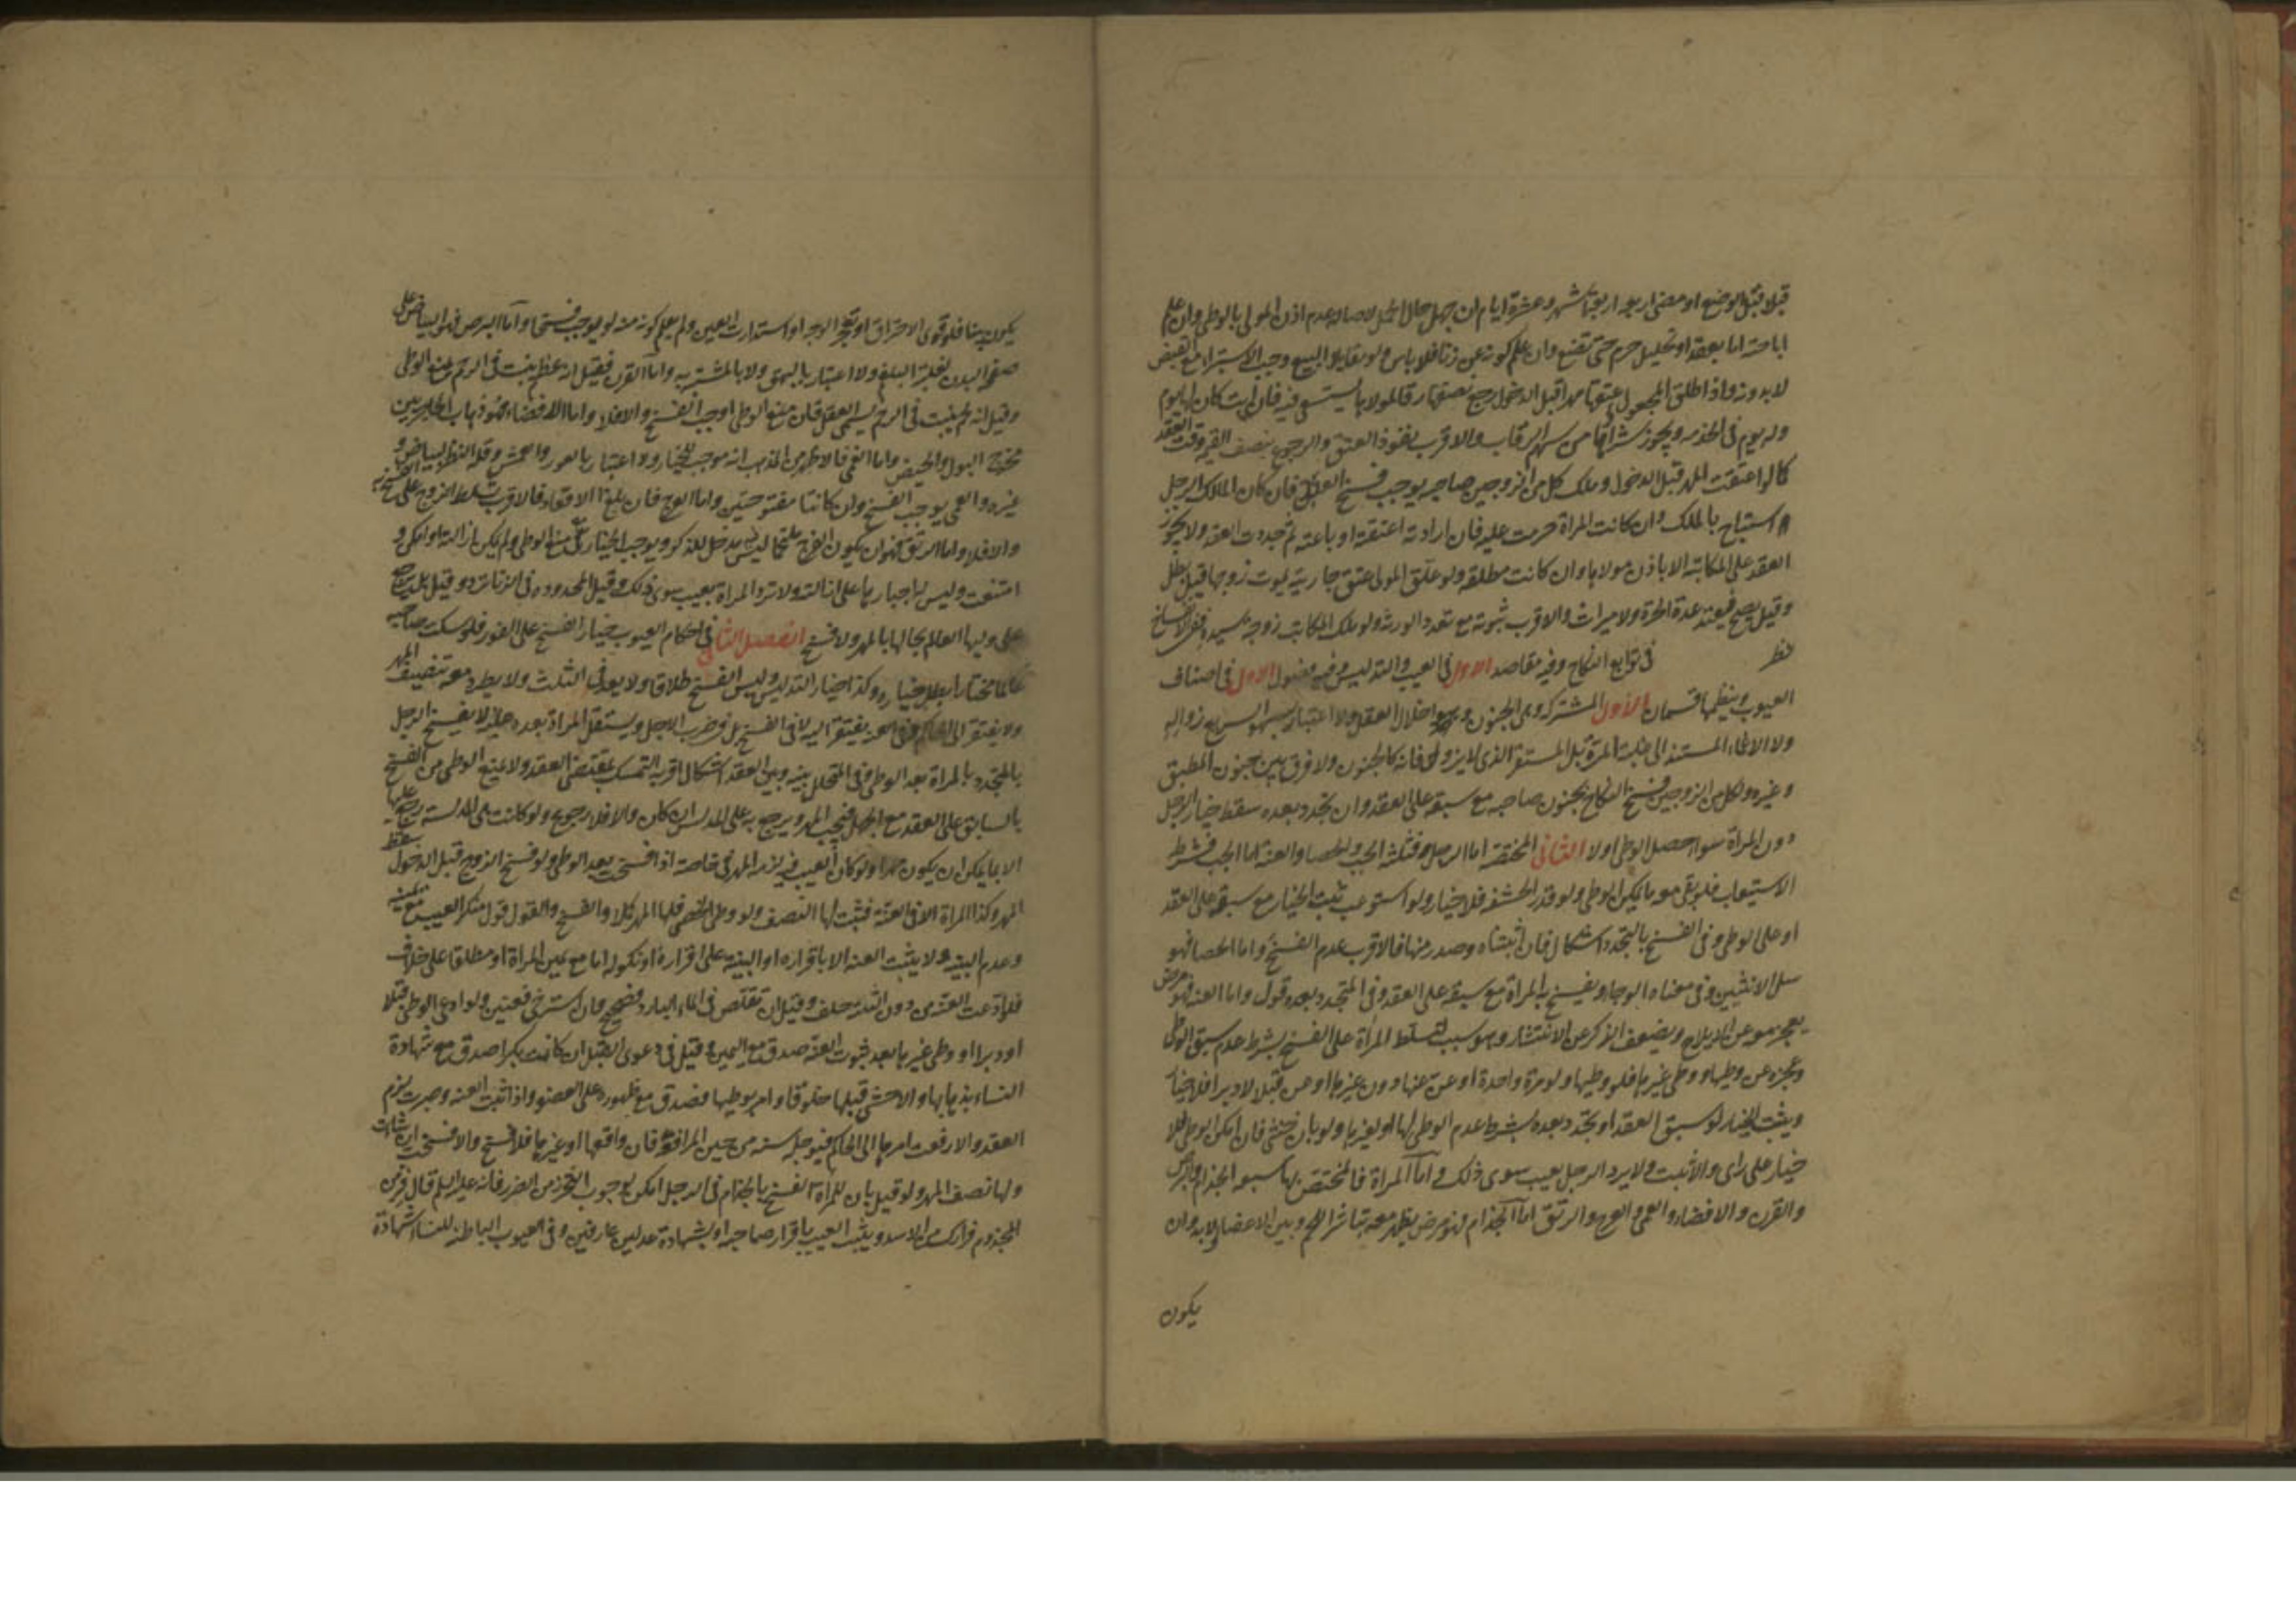 قبلا قبل الوضع او مضى اربعة اشهر وعشرة ايام ان جهل حال الحمل لاصالة عدم اذن المولى بالوطى وان علم
اباحته اما بعقد او تحليل حرم حتى تضع وان علم كونه عن زنا فلا باس ولو تقايلا البيع وجب الاستبراء مع القبض
لا بدونه واذا طلق المجعول عتقها مهرا قبل الدخول رجع نصفها رقا لمولاها يستسعى فيه فان ابت كان لها يوم
وله يوم فى الخدمه ويجوز شراؤها من سهم الرقاب والاقرب نفوذ العتق والرجوع بنصف القيمة وقت العقد
كما لو اعتقت المهر قبل الدخول وملك كل من الزوجين صاحبه يوجب فسخ العقد فان كان المالك الرجل
استباح بالملك وان كانت المراة حرمت عليه فان ارادته اعتقته او باعته ثم جددت العقد ولا يجوز
العقد على المكاتبة الا باذن مولاها وان كانت مطلقه ولو علق المولى عتق جاريته بموت زوجها قيل بطل
وقيل يصح فتعتد عدة الحرة ولا ميراث والاقرب ثبوته مع تعدد الورثه ولو ملك المكاتب زوجة سيده ففى الانفساخ
نظر فى توابع النكاح وفيه مقاصد الاول فى العيب والتدليس وفيه فصول الاول فى اصناف
العيوب وينظمها قسمان الاول المشتركه وهى الجنون وهو اختلال العقل ولا اعتبار بالسهو السريع زواله
ولا الاغماء المستند الى غلبة المرة بل المستقر الذى لا يزول فانه كالجنون ولا فرق بين جنون المطبق
وغيره ولكل من الزوجين فسخ النكاح بجنون صاحبه مع سبقه على العقد وان تجدد بعده سقط خيار الرجل
دون المراة سواء حصل الوطى اولا الثانى المختصه اما الرجل فثلثه الجب والخصا والعنه اما الجب فشرطه
الاستيعاب فلو بقى معه ما يمكن الوطى ولو قدر الحشفه فلا خيار ولو استوعب ثبت الخيار مع سبقه على العقد
او على الوطى وفى الفسخ بالمتجدد اشكال فان اثبتناه وصدر منها فالاقرب عدم الفسخ واما الخصا فهو
سل الانثيين وفى معناه الوجا وتفسخ به المراة مع سبقه على العقد وفى المتجدد بعده قول واما العنه فهو مرض
يعجز معه عن الايلاج ويضعف الذكر عن الانتشار وهو سبب لتسلط المراة على الفسخ بشرط عدم سبق الوطى
وعجزه عن وطيها ووطى غيرها فلو وطيها ولو مرة واحدة او عن عنها دون غيرها او عن قبل لا دبر فلا خيار
ويثبت الخيار لو سبق العقد او تجدد بعده بشرط عدم الوطى لها او لغيرها ولو بان خنثى فان امكن الوطى فلا
خيار على راى والا ثبت ولا يرد الرجل بعيب سوى ذلك واما المراة فالمختص بها سبعه الجذام والبرص
والقرن والافضاء والعمى والعرج والرتق اما الجذام فهو مرض يظهر معه تناثر اللحم ويبس الاعضا ولا بد وان
يكون
يكون بينا فلو قوى الاحتراق او تعجر الوجه او استدارت العين ولم يعلم كونه منه لم يوجب فسخا واما البرص فهو البياض على
صفحة البدن لغلبة البلغم ولا اعتبار بالبهق ولا بالمشتبه به واما القرن فقيل انه عظم ينبت فى الرحم يمنع الوطى
وقيل انه لحم ينبت فى الرحم يسمى العفل فان منع الوطى اوجب الفسخ والا فلا واما الافضاء فهو ذهاب الحاجز بين
مخرج البول والحيض واما العمى فالاظهر من المذهب انه موجب للخيار ولا اعتبار بالعور والعمش وقلة النظر لبياض و
غيره والعمى يوجب الفسخ وان كانتا مفتوحتين واما العرج فان بلغ الاقعاد فالاقرب تسلط الزوج على الفسخ به
والا فلا واما الرتق فهو ان يكون الفرج ملتحما ليس فيه مدخل للذكر ويوجب الخيار مع منع الوطى ولم يكن ازالته او امكن و
امتنعت وليس له اجبارها على ازالته ولا ترد المراة بعيب سوى ذلك وقيل المحدوده فى الزنا ترد وقيل بل يرجع
على وليها العالم بحالها بالمهر ولا فسخ الفصل الثانى فى احكام العيوب خيار الفسخ على الفور فلو سكت صاحبه
عالما مختارا بطل خياره وكذا خيار التدليس وليس الفسخ طلاقا ولا يعد فى الثلث ولا يطرد معه تنصيف المهر
ولا يفتقر الى الحاكم وفى العنه يفتقر اليه لا فى الفسخ بل فى ضرب الاجل ويستقل المراة بعده ولا يفسخ الرجل
بالمتجدد بالمراة بعد الوطى وفى المتخلل بينه وبين العقد اشكال اقربه التمسك بمقتضى العقد ولا يمنع الوطى من الفسخ
بالسابق على العقد مع الجهل فيجب المهر ويرجع به على المدلس ان كان والا فلا رجوع ولو كانت هى المدلسه رجع عليها
الا بما يمكن ان يكون مهرا ولو كان العيب فيه لزمه المهر فى خاصته اذا فسخت بعد الوطى ولو فسخ الزوج قبل الدخول سقط
المهر وكذا المراة الا فى العنة فثبت لها النصف ولو وطى الخصى فلها المهر كملا والفسخ والقول قول منكر العيب مع يمينه
وعدم البينه ولا يثبت العنه الا باقراره او البينه على اقراره او نكوله اما مع يمين المراة او مطلقا على خلاف
فلو ادعت العنه من دون الثلثه حلف وقيل ان تقلص فى الماء البارد فصحيح وان استرخى فعنين ولو ادعى الوطى قبلا
او دبرا او وطى غيرها بعد ثبوت العنه صدق مع اليمين وقيل فى دعوى القبل ان كانت بكرا صدق مع شهادة
النساء بذهابها والا حشى قبلها خلوقا وامر بوطيها فصدق مع ظهوره على العضو واذا ثبتت العنه وصبرت لزم
العقد والا رفعت امرها الى الحاكم فيؤجله سنه من حين المرافعه فان واقعها او غيرها فلا فسخ والا فسخت ان شاءت
ولها نصف المهر ولو قيل بان للمراة الفسخ بالجذام فى الرجل امكن لوجوب التحرز من الضرر فانه عليه السلم قال فر من
المجذوم فرارك من الاسد ويثبت العيب باقرار صاحبه او بشهادة عدلين عارفين وفى العيوب الباطنه للنساء شهادة